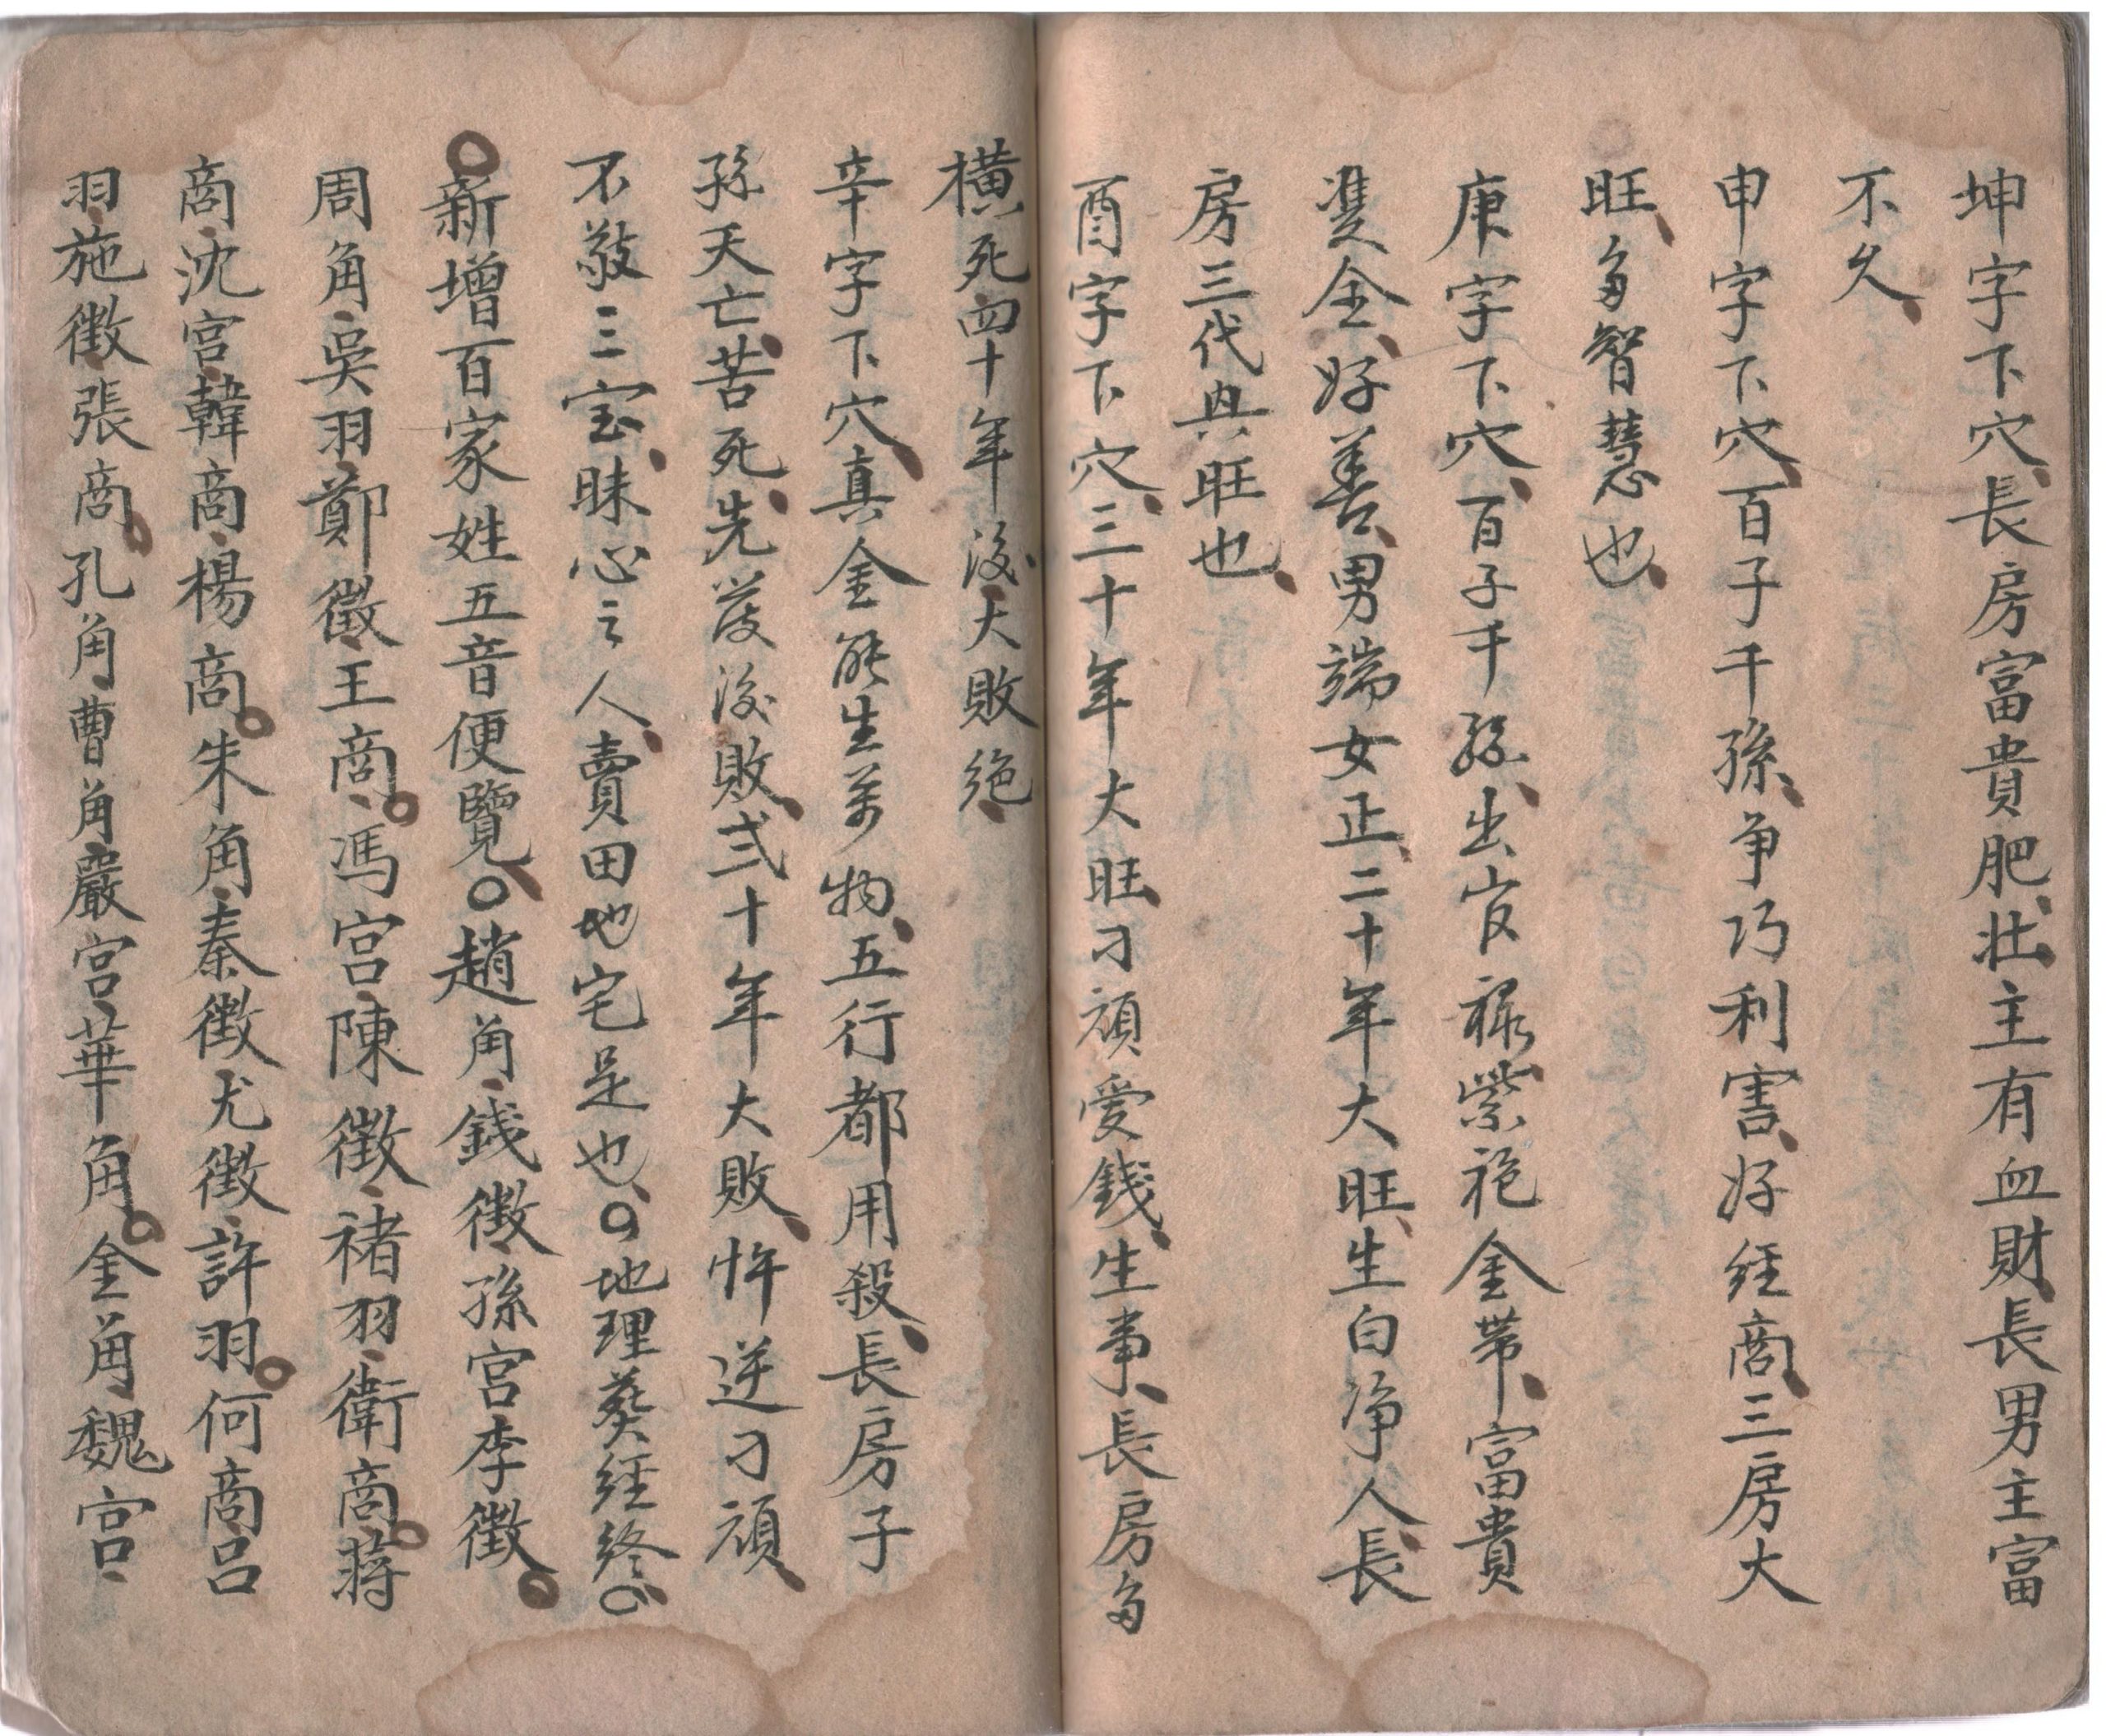 坤字下穴長房富貴肥壯主有血財長男主富
不久
申字下穴百子千孫争巧利害好經商三房大
旺多智慧也
庚字下穴百子千孫出官祿紫袍金帶富貴
雙全好善男端女正二十年大旺生白净人長
房三代興旺也
酉字下穴三十年大旺刁頑愛錢生事長房多
橫死四十年後大敗絶
辛字下穴真金能生萬物五行都用殺長房子
孫夭亡苦死先發後敗弍十年大敗忤逆刁頑
不敬三宝昧心之人賣田地宅足也。地理葬經終
新增百家姓五音便覽○趙角錢徵孫宮李徵
周角吳羽鄭徵王商馮宮陳徵褚羽衛商蔣
商沈宮韓商楊商朱角秦徵尤徵許羽何商吕
羽施徵張商孔角曹角嚴宮華角金角魏宮